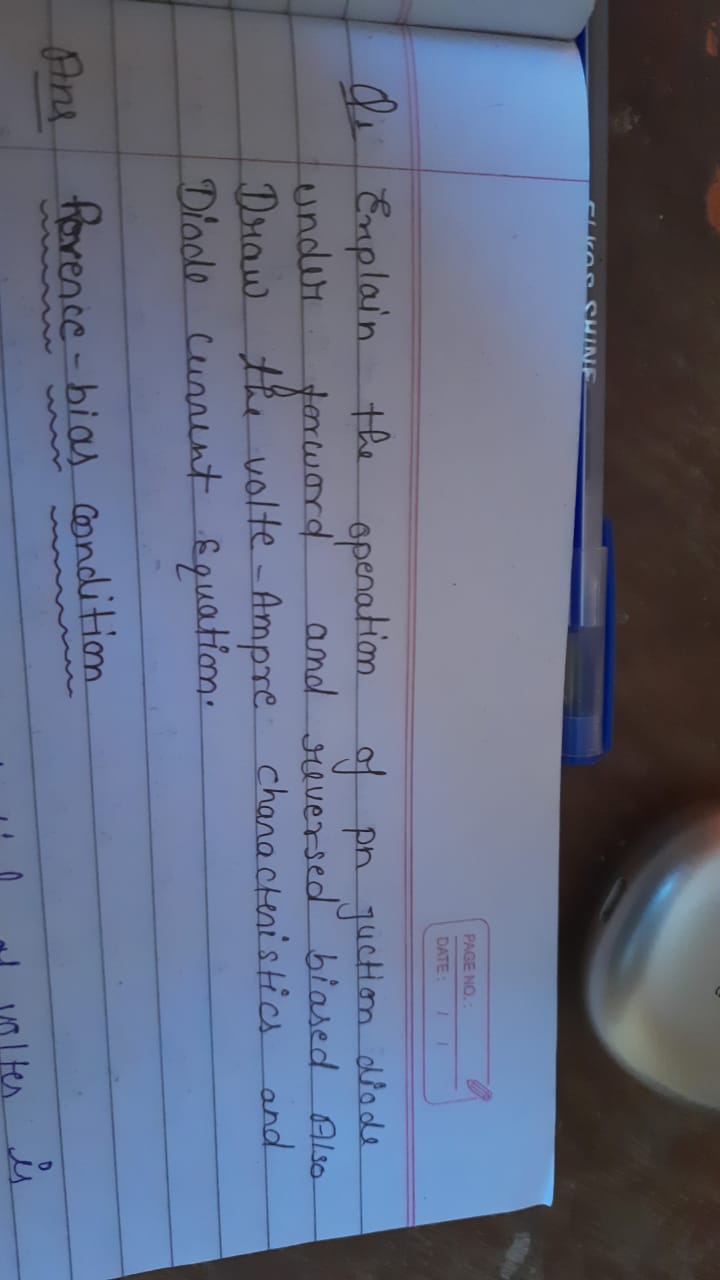 PAGE NO.:
DATE: / /
Q1 Explain the operation of pn juction diode
under forword and reversed biased Also
Draw the volte-Ampre characteristics and
Diode current Equation.
Ans
bias condition
voltes is